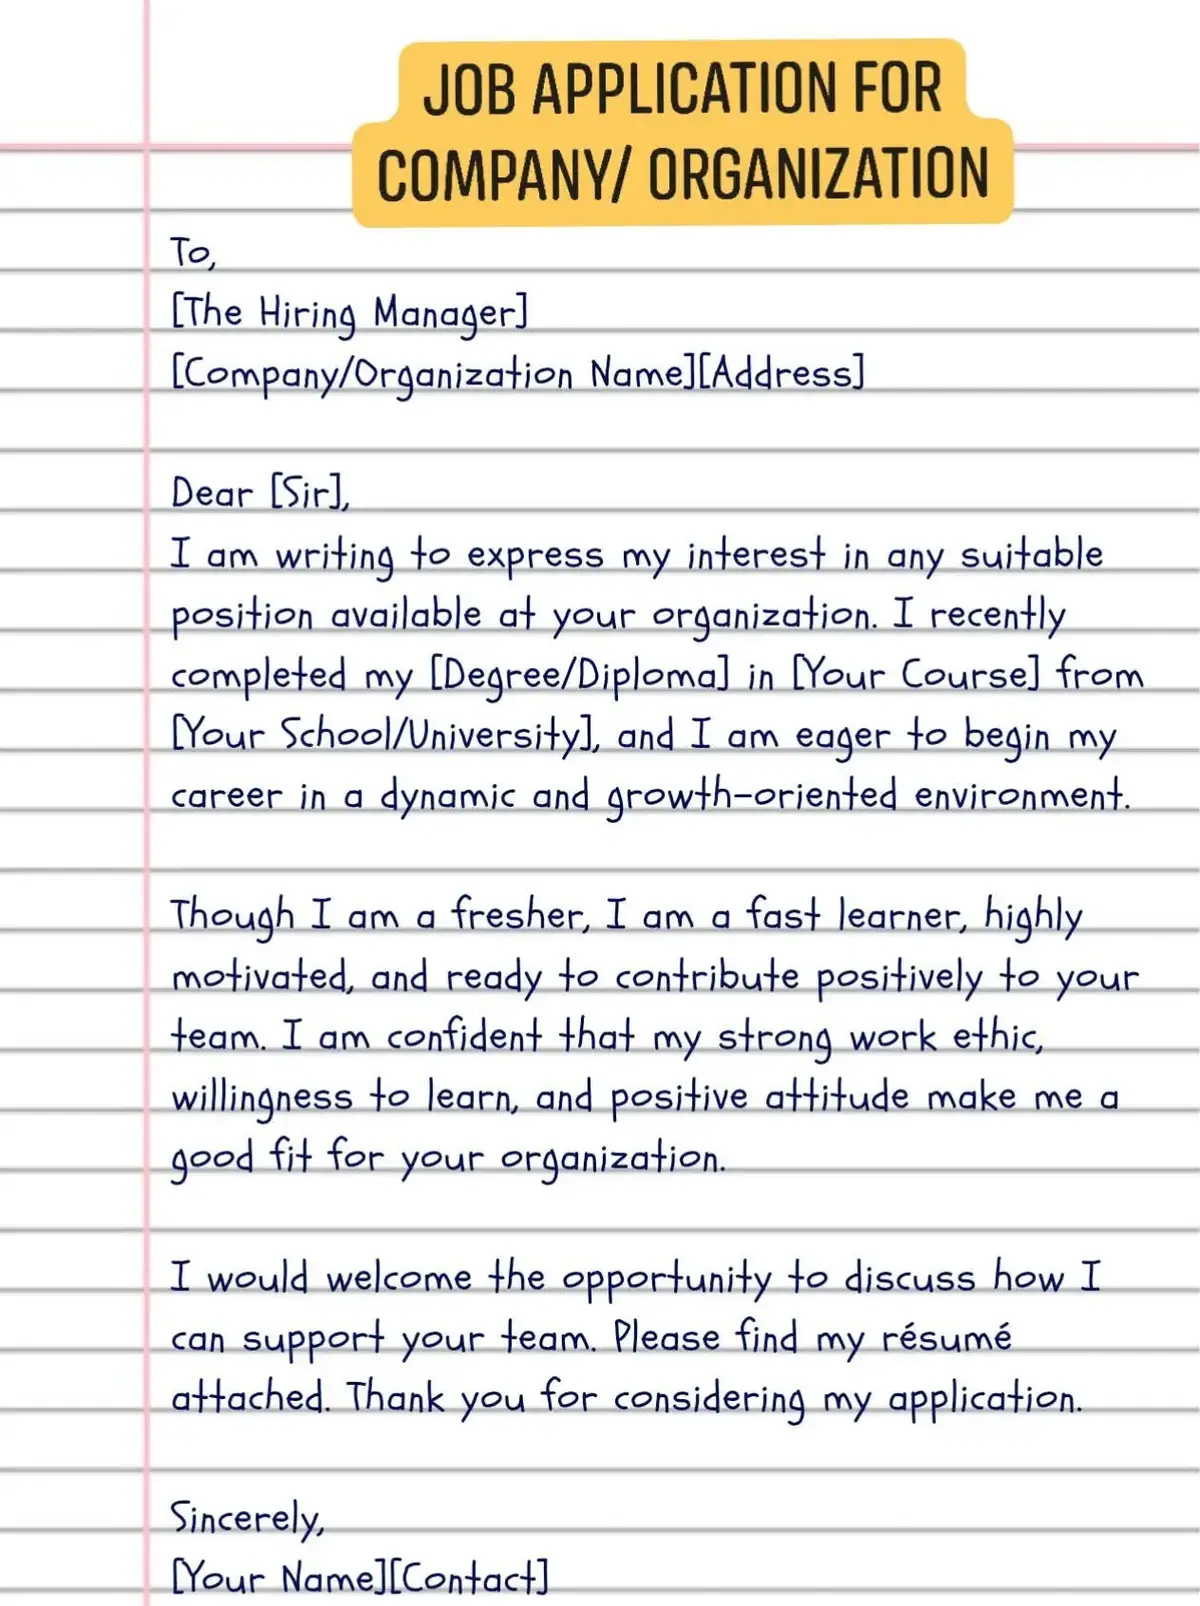 JOB APPLICATION FOR
COMPANY/ ORGANIZATION
To,
[The Hiring Manager]
[Company/Organization Name][Address]
Dear [Sir],
I am writing to express my interest in any suitable
position available at your organization. I recently
completed my [Degree/Diploma] in [Your Course] from
[Your School/University], and I am eager to begin my
career in a dynamic and growth-oriented environment.
Though I am a fresher, I am a fast learner, highly
motivated, and ready to contribute positively to your
team. I am confident that my strong work ethic,
willingness to learn, and positive attitude make me a
good fit for your organization.
I would welcome the opportunity to discuss how I
can support your team. Please find my résumé
attached. Thank you for considering my application.
Sincerely,
[Your Name][Contact]